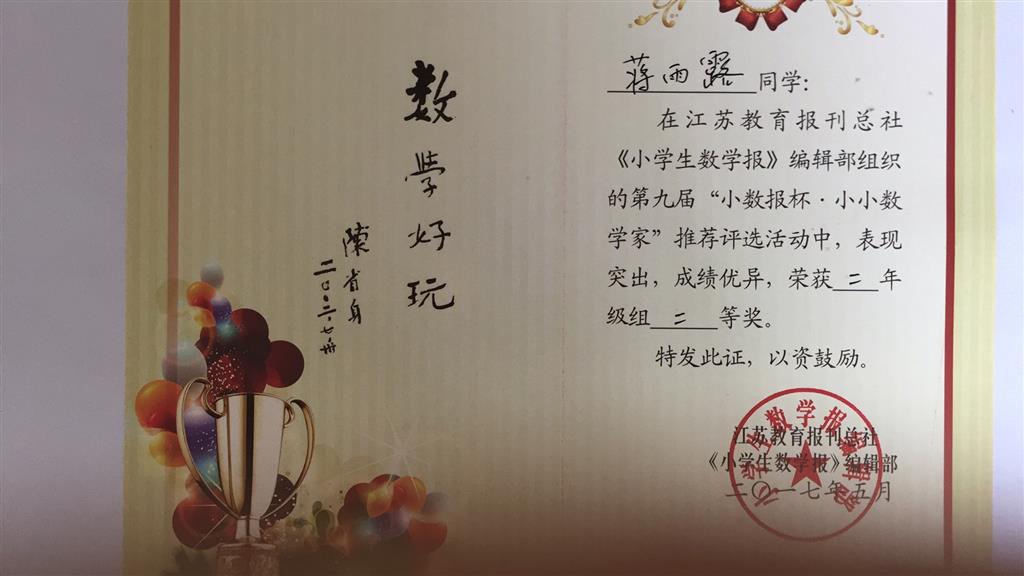 数学好玩
陳省身
蒋雨露同学:
在江苏教育报刊总社
《小学生数学报》编辑部组织
的第九届“小数报杯·小小数
学家”推荐评选活动中，表现
突出，成绩优异，荣获二年
级组二等奖。
特发此证，以资鼓励。
江苏教育报刊总社
《小学生数学报》编辑部
二〇一七年五月